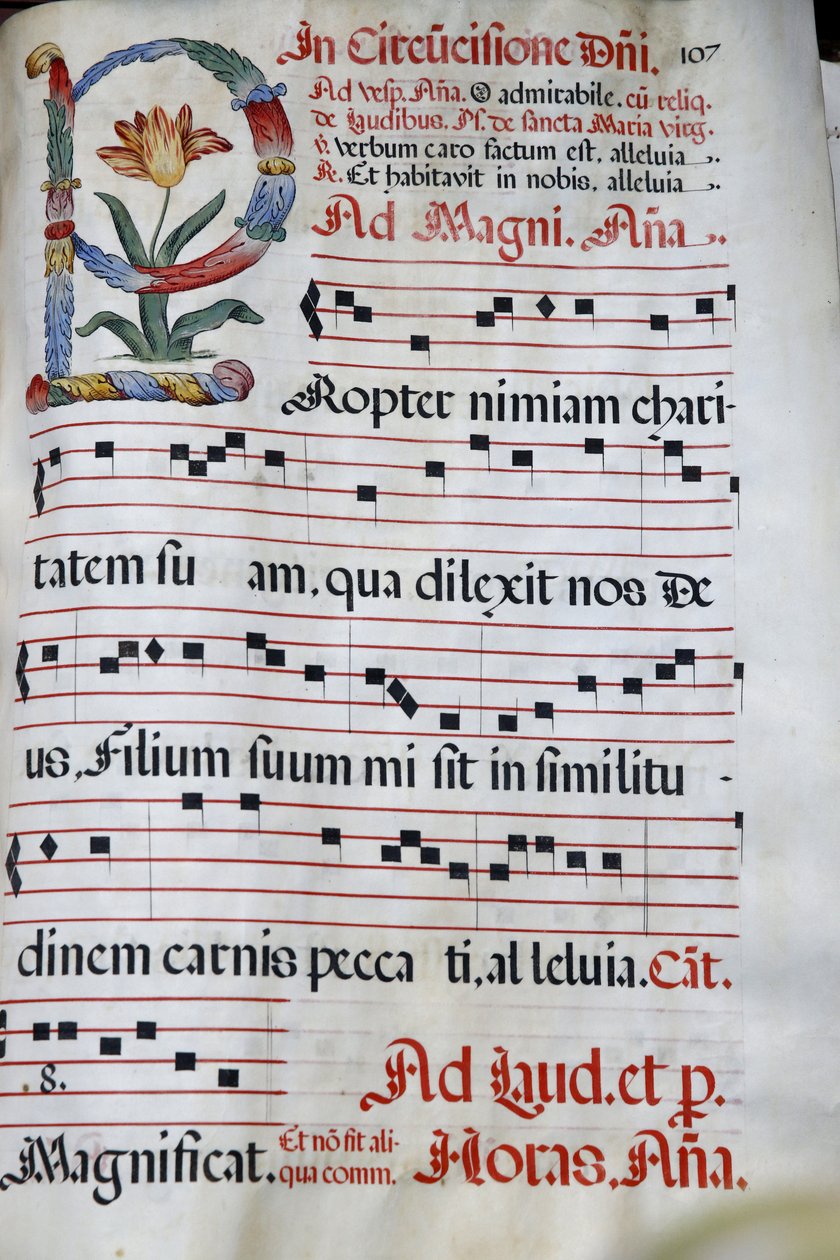 In Circūcisione Dñi. 107
Ad vesp. Aña. O admirabile. cū reliq.
de Laudibus. Ps. de sancta Maria virg.
℣. Verbum caro factum est, alleluia.
℟. Et habitavit in nobis, alleluia.
Ad Magni. Aña.
PRopter nimiam chari-
tatem su am, qua dilexit nos De
us, Filium suum mi sit in similitu -
dinem carnis pecca ti, al leluia. Cāt.
8.
Ad Laud. et p.
Magnificat. Et nō fit ali-
qua comm. Horas, Aña.